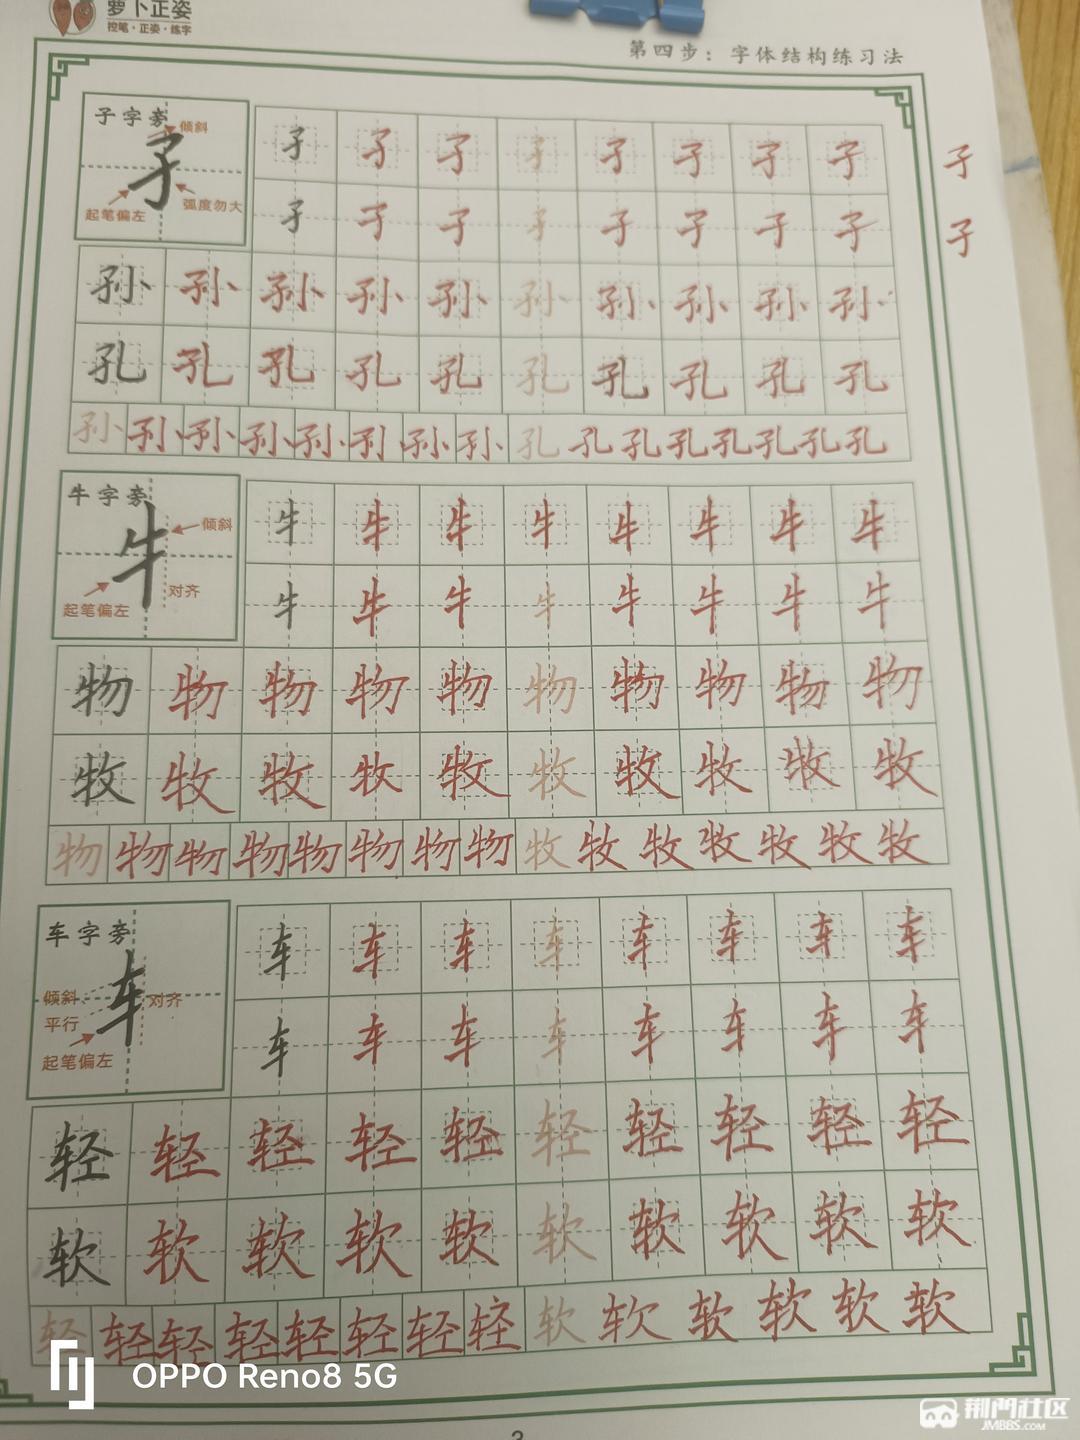 萝卜正姿
控笔·正姿·练字
第四步：字体结构练习法
子字旁
倾斜
起笔偏左
弧度勿大
孑 孑 孑 孑 孑 孑 孑 孑 孑
孑 孑 孑 孑 孑 孑 孑 孑 孑
孙 孙 孙 孙 孙 孙 孙 孙 孙 孙
孔 孔 孔 孔 孔 孔 孔 孔 孔 孔
孙 孙 孙 孙 孙 孙 孙 孙 孔 孔 孔 孔 孔 孔 孔 孔
牛字旁
倾斜
起笔偏左
对齐
牛 牛 牛 牛 牛 牛 牛 牛
牛 牛 牛 牛 牛 牛 牛 牛
物 物 物 物 物 物 物 物 物 物
牧 牧 牧 牧 牧 牧 牧 牧 牧 牧
物 物 物 物 物 物 物 物 牧 牧 牧 牧 牧 牧 牧
车字旁
倾斜
平行
起笔偏左
对齐
车 车 车 车 车 车 车 车
车 车 车 车 车 车 车 车
轻 轻 轻 轻 轻 轻 轻 轻 轻 轻
软 软 软 软 软 软 软 软 软 软
轻 轻 轻 轻 轻 轻 轻 轻 软 软 软 软 软 软
3
OPPO Reno8 5G
荆门社区
JMBBS.COM